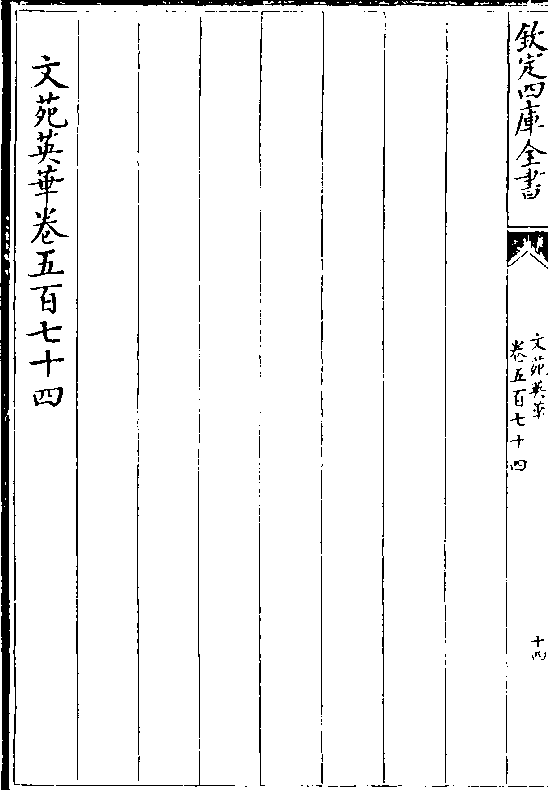 欽定四庫全書
文苑英華
卷五百七十四
十四
文苑英華卷五百七十四